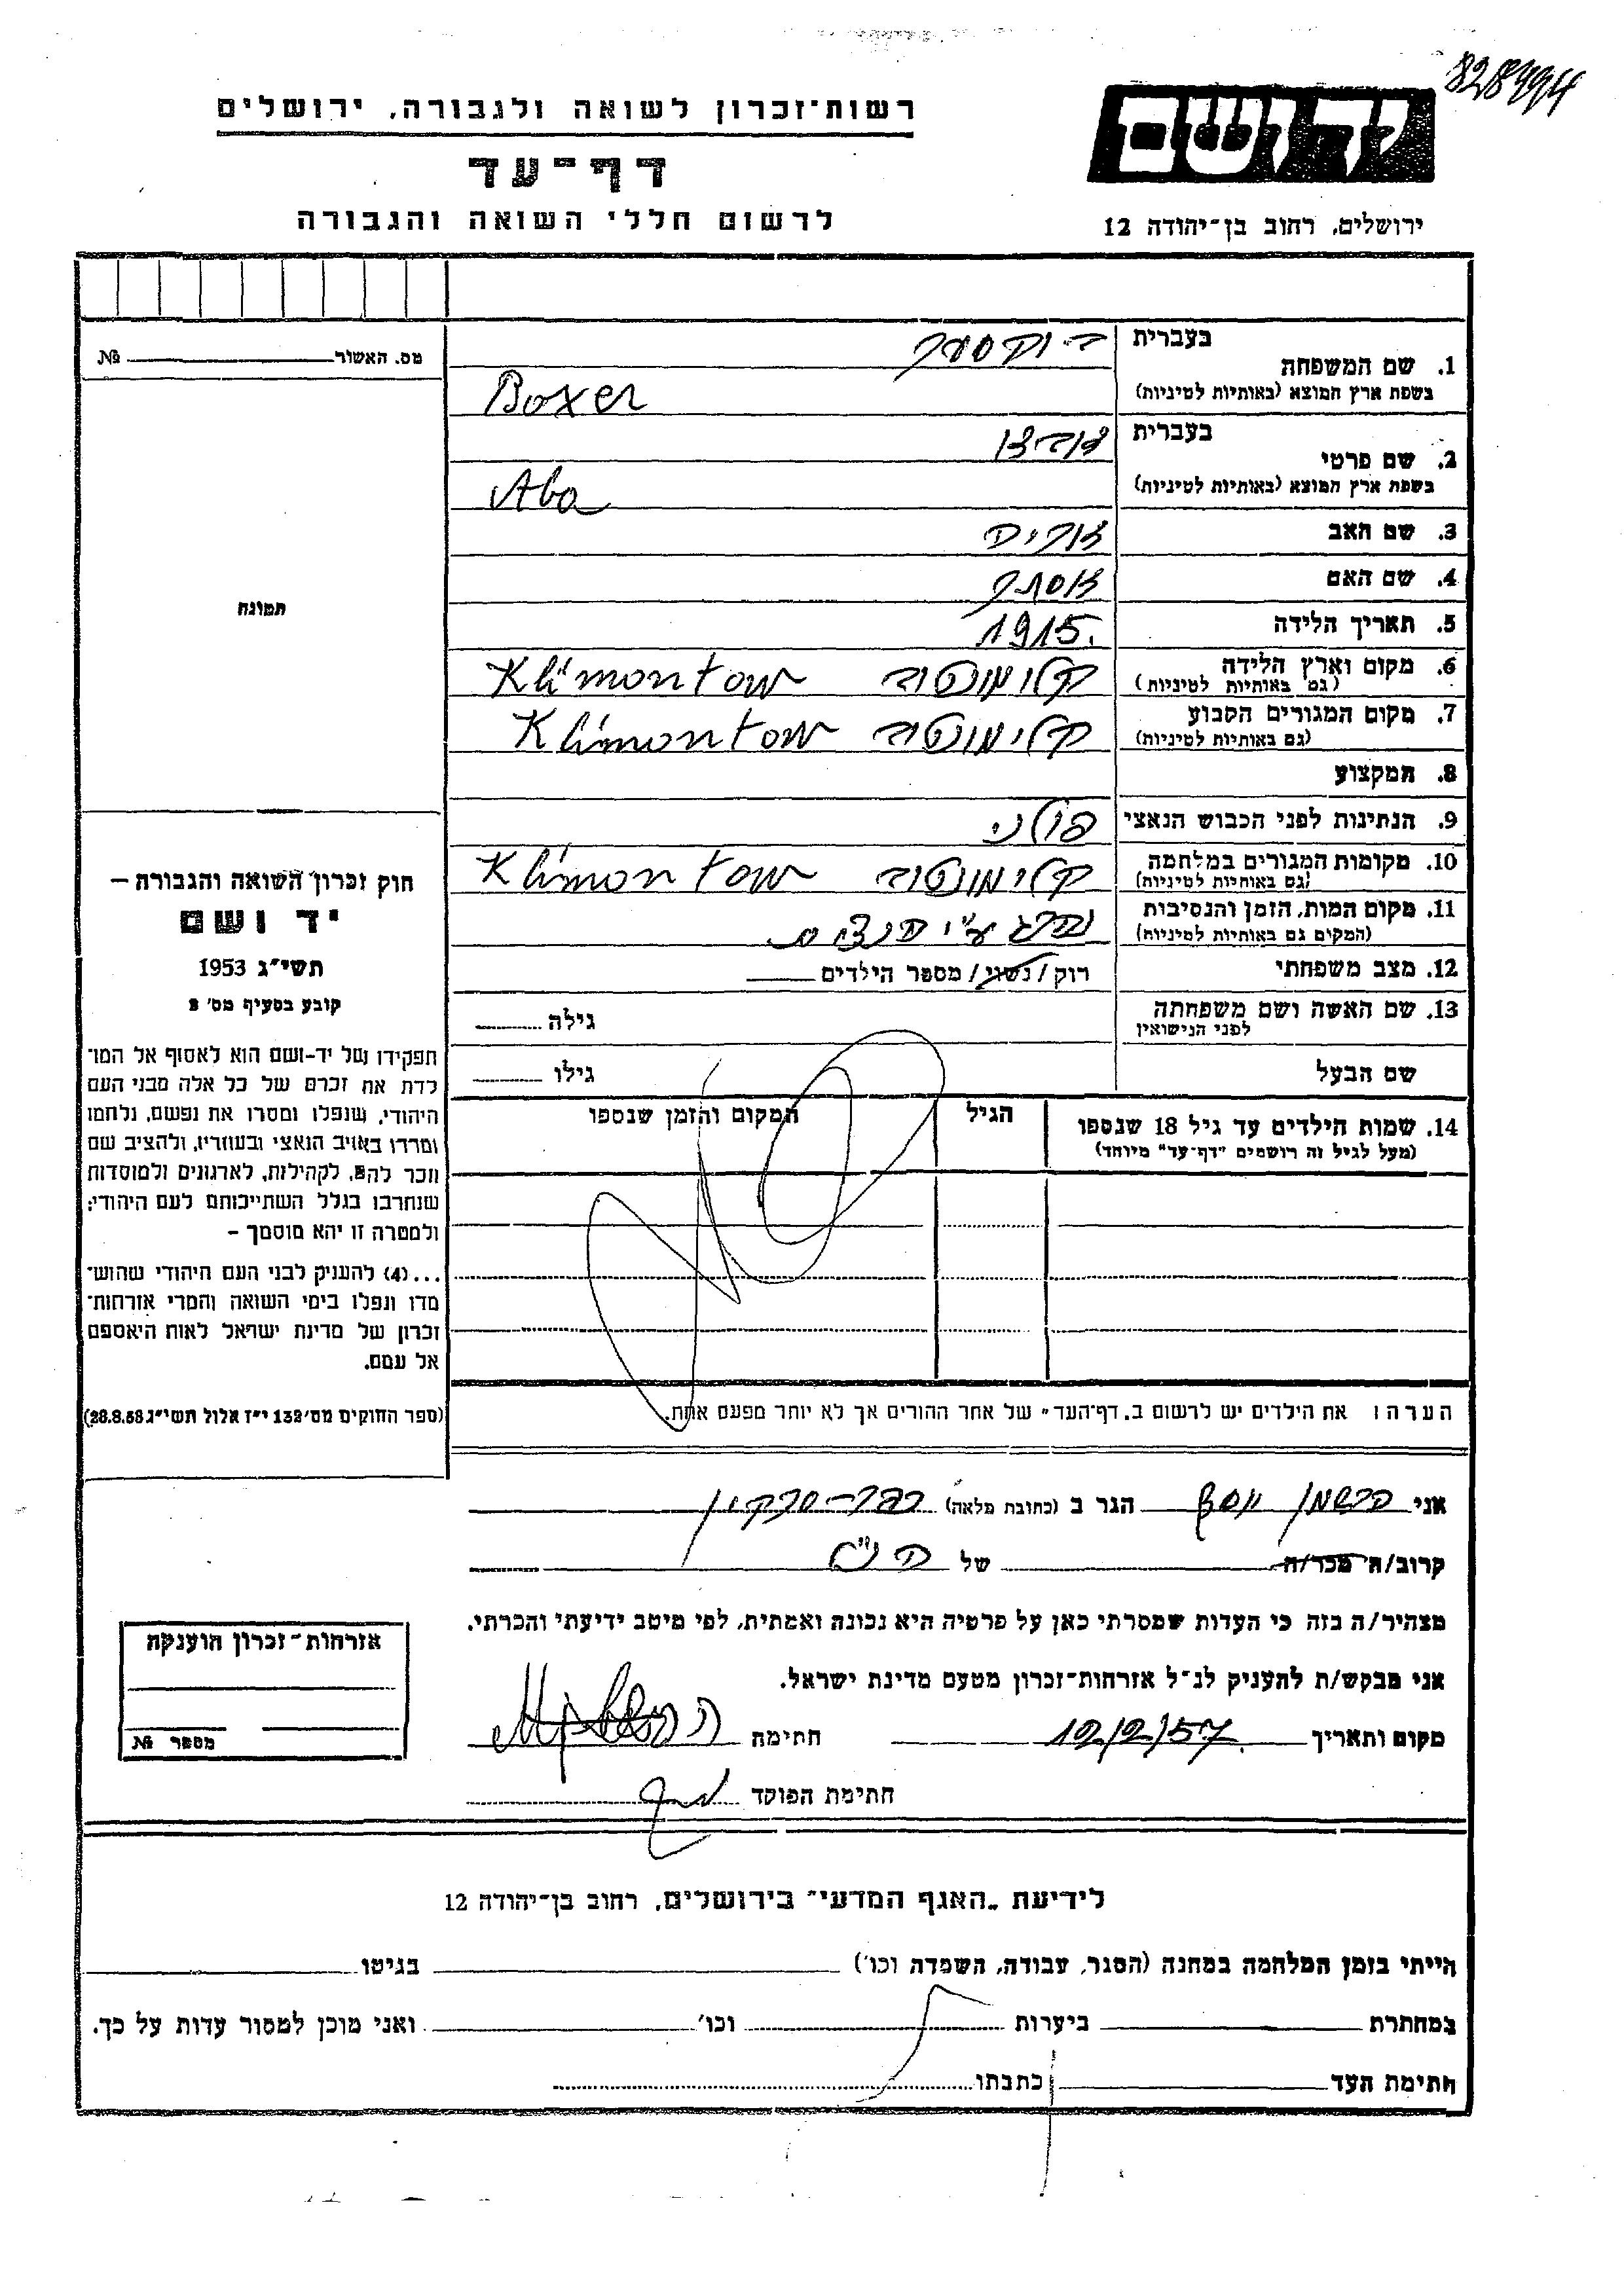 8284494
רשות־זכרון לשואה ולגבורה, ירושלים
יד ושם
דף־עד
לרשום חללי השואה והגבורה
ירושלים, רחוב בן־יהודה 12
מס. האשור № 
1. שם המשפחה בעברית בוקסער
בשפת ארץ המוצא (באותיות לטיניות) Boxer
2. שם פרטי בעברית
בשפת ארץ המוצא (באותיות לטיניות) Aba
3. שם האב
4. שם האם אסתר
5. תאריך הלידה 1915.
6. מקום וארץ הלידה (גם באותיות לטיניות) קלימונטוב Klimontow
7. מקום המגורים הקבוע (גם באותיות לטיניות) קלימונטוב Klimontow
8. המקצוע
9. הנתינות לפני הכבוש הנאצי פולני
10. מקומות המגורים במלחמה (גם באותיות לטיניות) קלימונטוב Klimontow
11. מקום המות, הזמן והנסיבות (המקום גם באותיות לטיניות) נהרג ע"י הנאצים
12. מצב משפחתי רוק/נשוי/ מספר הילדים
13. שם האשה ושם משפחתה לפני הנישואין גילה
שם הבעל גילו
14. שמות הילדים עד גיל 18 שנספו הגיל המקום והזמן שנספו
(מעל לגיל זה רושמים "דף־עד" מיוחד)
הערה: את הילדים יש לרשום ב„דף־העד" של אחד ההורים אך לא יותר מפעם אחת.
תמונה
חוק זכרון השואה והגבורה –
יד ושם
תשי"ג 1953
קובע בסעיף מס' 2
תפקידו של יד-ושם הוא לאסוף אל המו־
לדת את זכרם של כל אלה מבני העם
היהודי, שנפלו ומסרו את נפשם, נלחמו
ומרדו באויב הנאצי ובעוזריו, ולהציב שם
וזכר להם, לקהילות, לארגונים ולמוסדות
שנחרבו בגלל השתייכותם לעם היהודי;
ולמטרה זו יהא מוסמך –
...(4) להעניק לבני העם היהודי שהוש־
מדו ונפלו בימי השואה והמרי אזרחות־
זכרון של מדינת ישראל לאות היאספם
אל עמם.
(ספר החוקים מס' 132 י"ז אלול תשי"ג 28.8.53)
אני יוסף הגר ב (כתובת מלאה)
קרוב/ה מכר/ה של הנ"ל
מצהיר/ה בזה כי העדות שמסרתי כאן על פרטיה היא נכונה ואמתית, לפי מיטב ידיעתי והכרתי.
אני מבקש/ת להעניק לנ"ל אזרחות־זכרון מטעם מדינת ישראל.
מקום ותאריך 12/2/57 חתימה
חתימת הפוקד
אזרחות־זכרון הוענקה
מספר №
לידיעת „האגף המדעי" בירושלים, רחוב בן־יהודה 12
הייתי בזמן המלחמה במחנה (הסגר, עבודה, השמדה וכו') בגיטו
במחתרת ביערות וכו' ואני מוכן למסור עדות על כך.
חתימת העד כתבתו